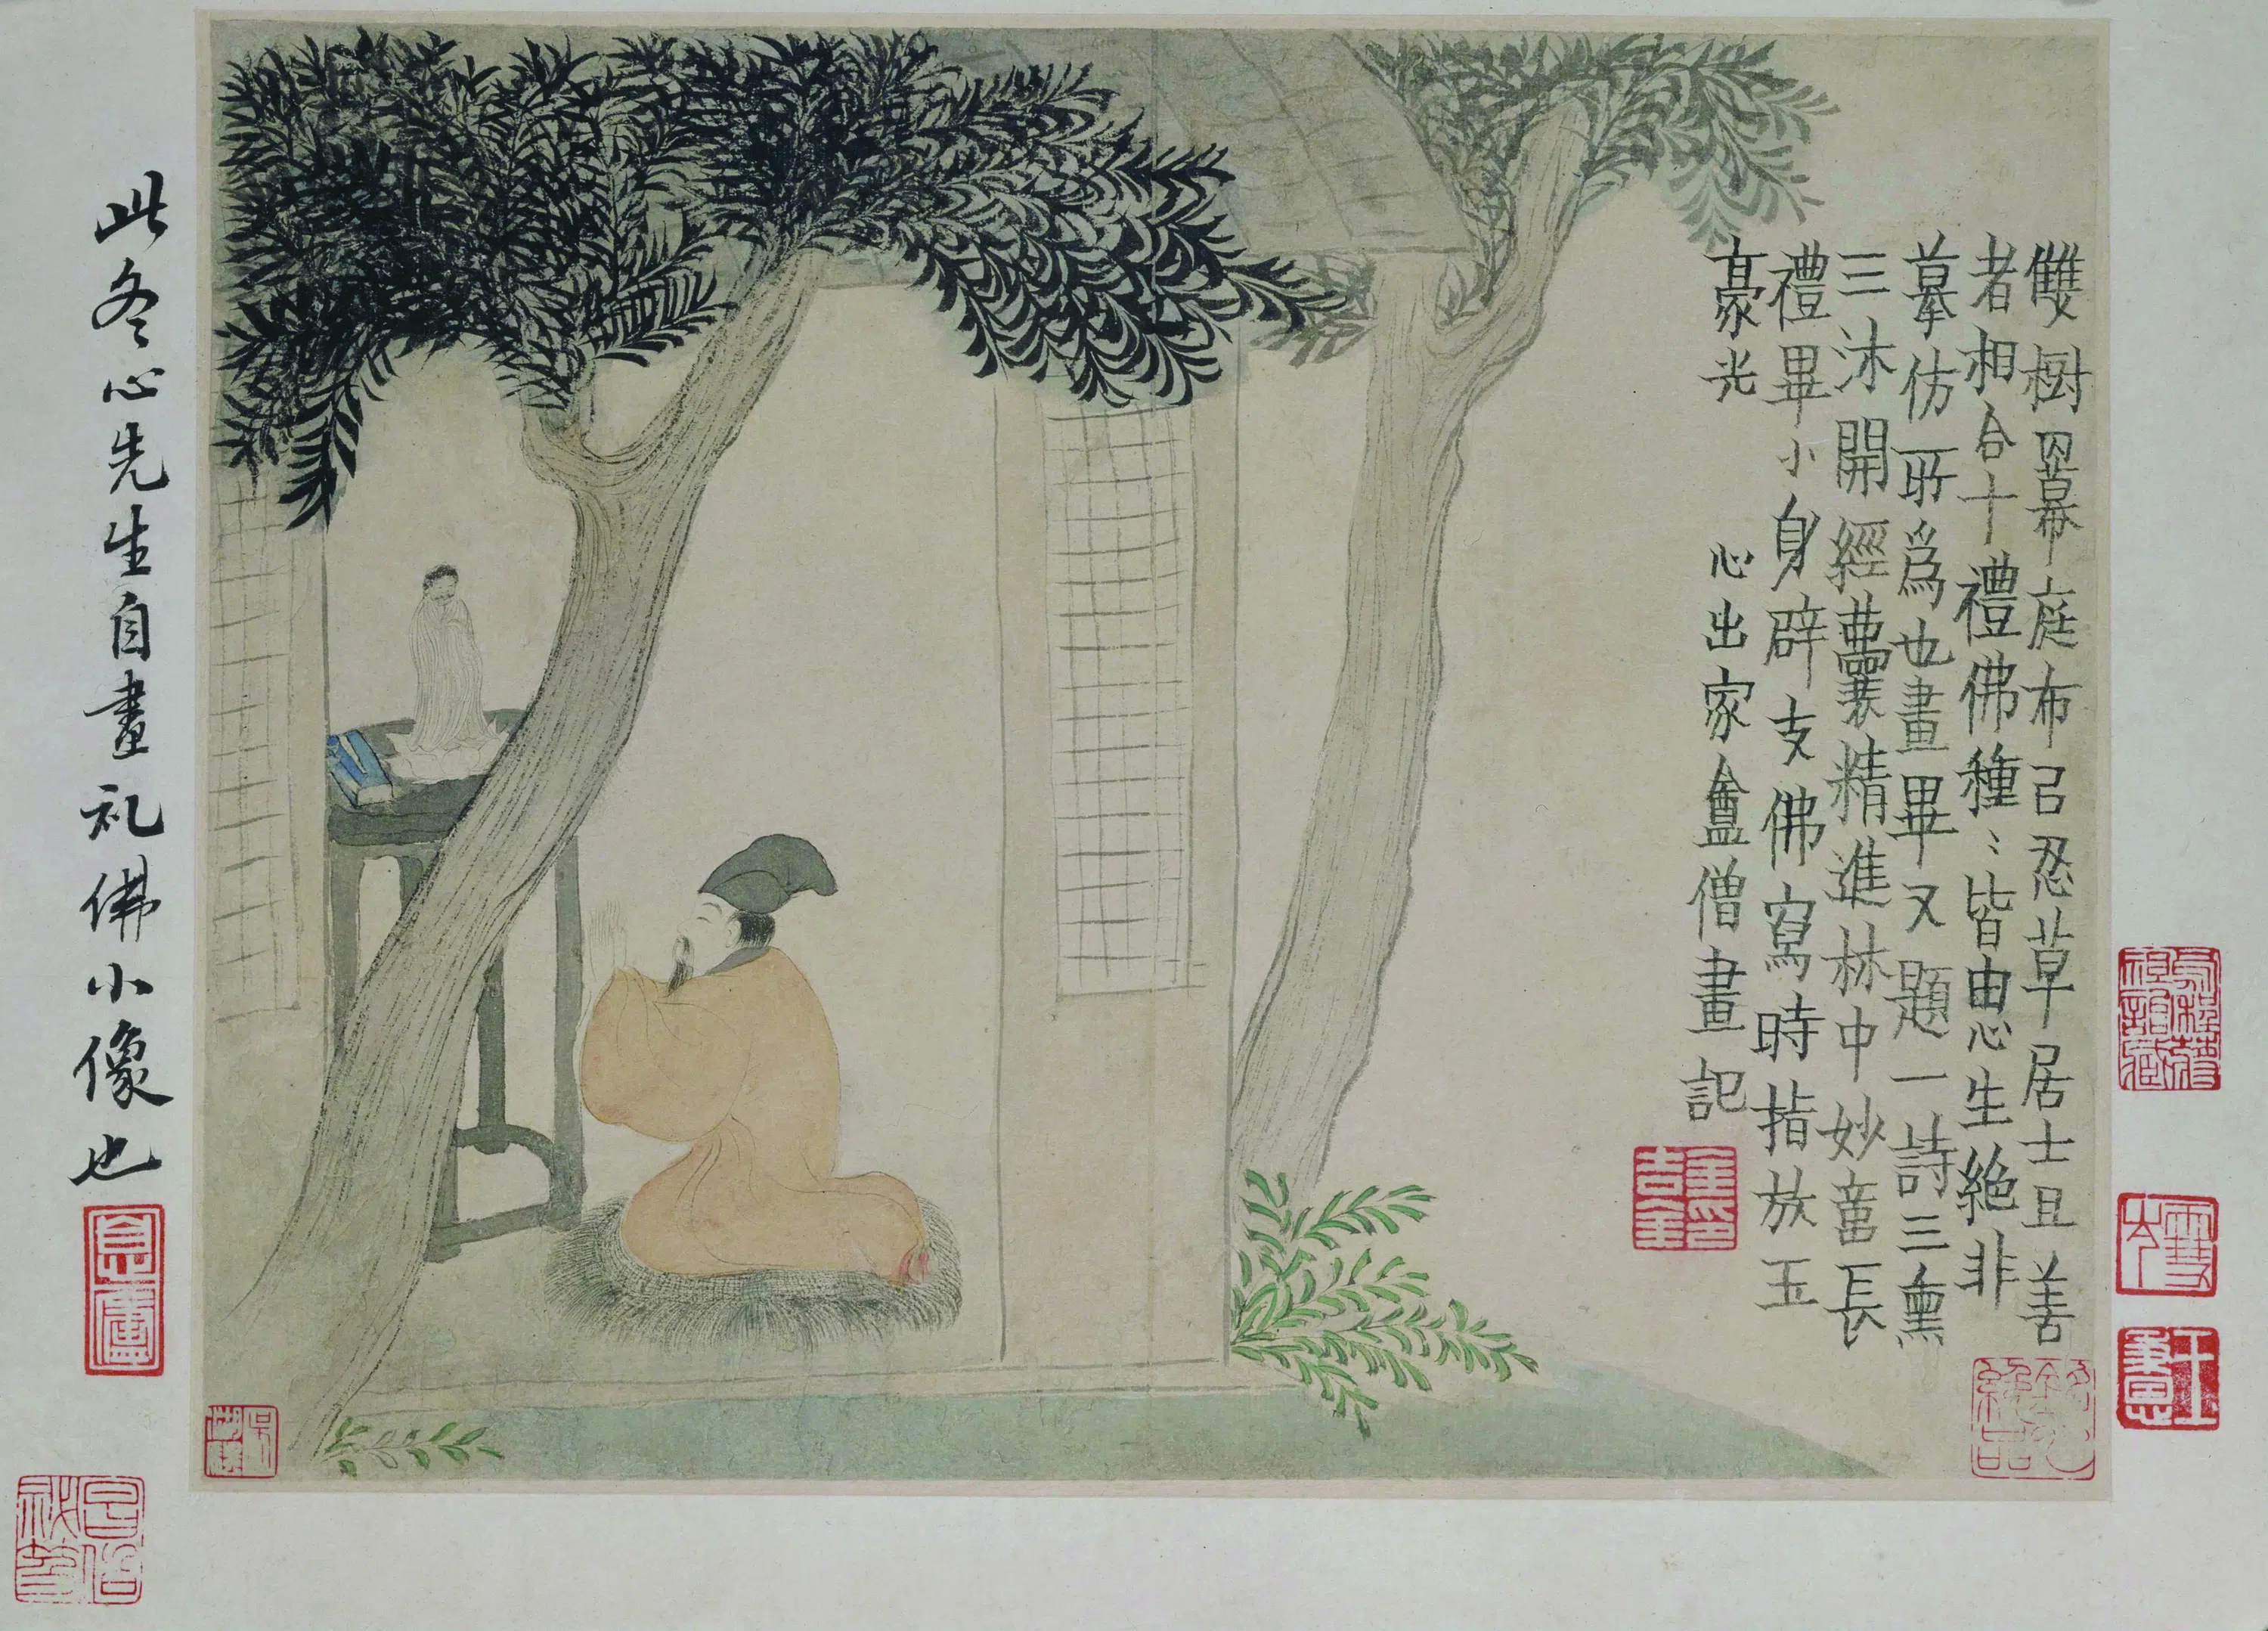 雙樹羃庭布㠯忍草居士且善
者相合十禮佛種〻皆由心生絶非
摹仿所爲也畫畢又題一詩三熏
三沐開經囊精進林中妙啻長
禮畢小身辟支佛寫時指放玉
豪光
心出家盦僧畫記
金吉金印
此冬心先生自畫礼佛小像也